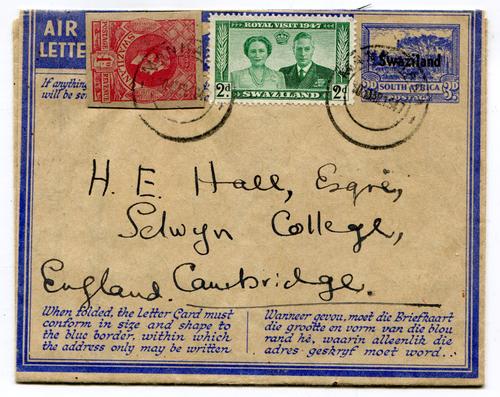 AIR
LETTER
If anything
will be sen
POSTAGE
SWAZILAND
1d
REVENUE
ROYAL VISIT 1947
2d
2d
SWAZILAND
Swaziland
3D
3D
SOUTH AFRICA
H. E. Hall, Esqre,
Selwyn College,
England. Cambridge.
When folded, the Letter Card must
conform in size and shape to
the blue border, within which
the address only may be written
Wanneer gevou, moet die Briefkaart
die grootte en vorm van die blou
rand hê, waarin alleenlik die
adres geskryf moet word..